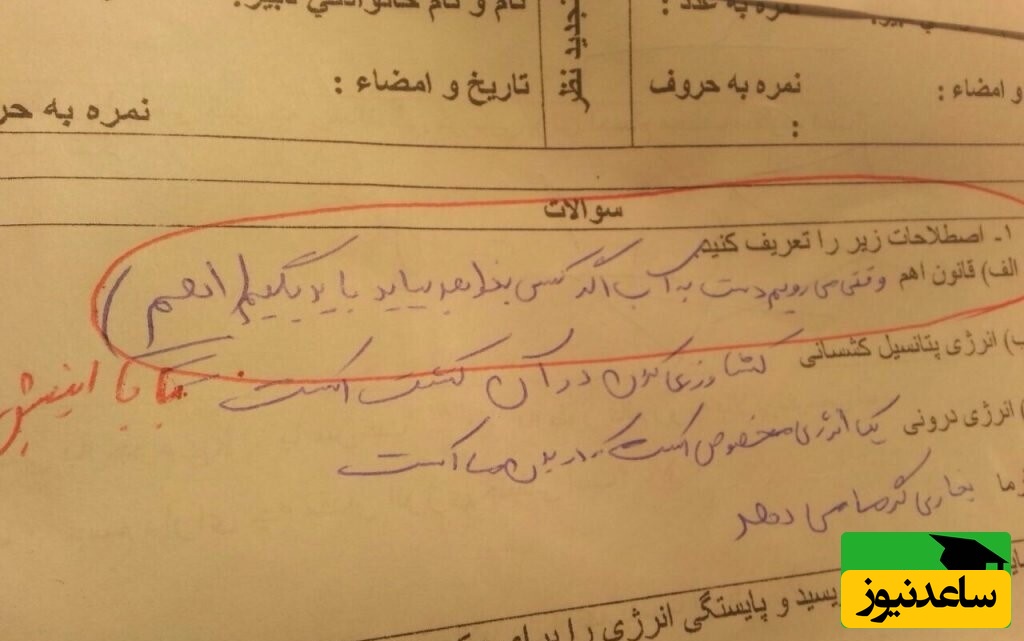 نمره به عدد :
تجدید نظر
نام و نام خانوادگی دبیر:
و امضاء :
نمره به حروف :
تاریخ و امضاء :
نمره به حر
سوالات
۱- اصطلاحات زیر را تعریف کنیم
الف) قانون اهم وقتی می رویم دست به آب اگر کسی بخواهد بیاید باید بگویم (اهم)
ب) انرژی پتانسیل کشسانی کشاورزی کردن در آن کشت است
بابا اینیش
) انرژی درونی یک انرژی مخصوص است که در بدن ما است
رما بخاری گرما می دهد
پایستگی انرژی را
ساعدنیوز